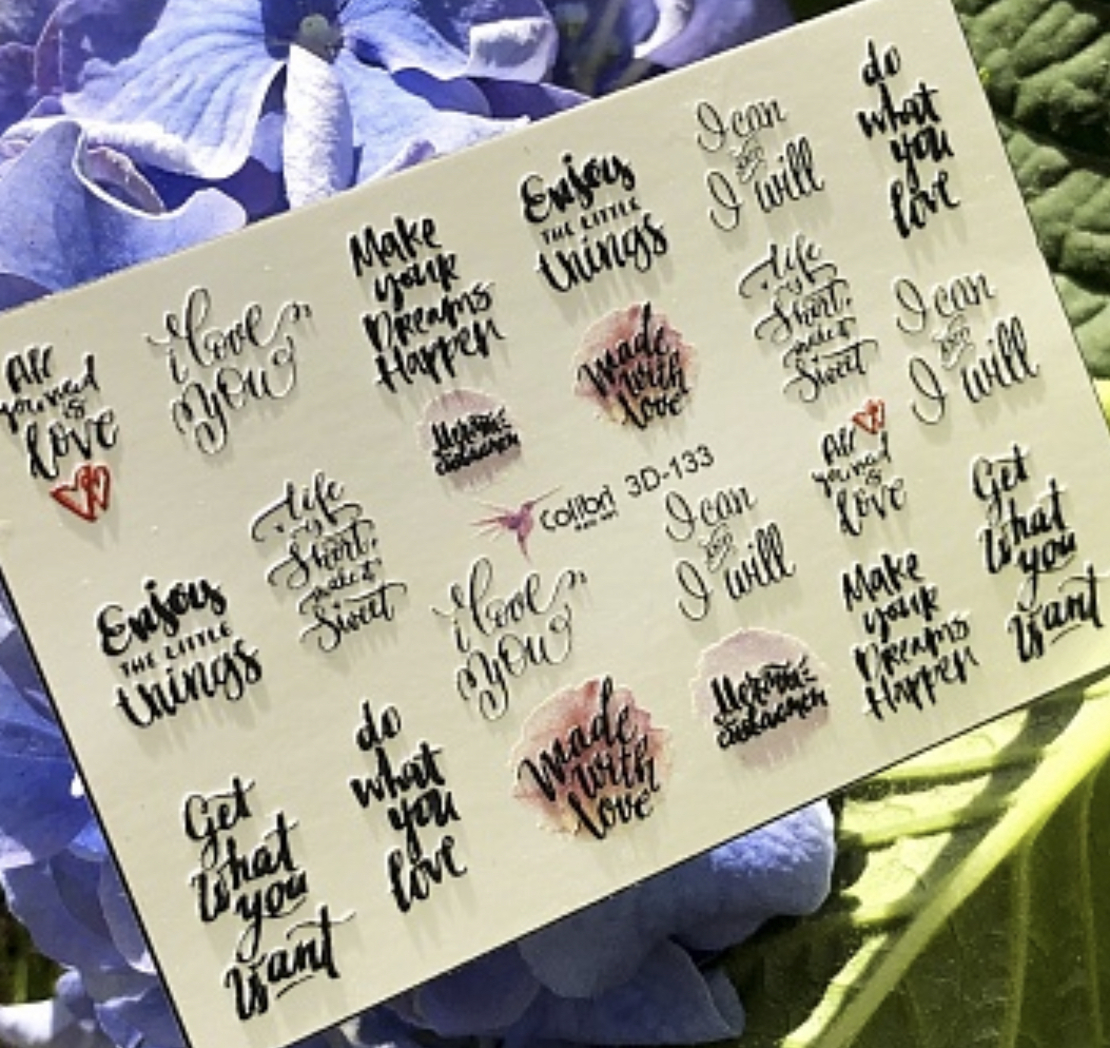 do
what
you
love
I can
and
I will
Enjoy
THE LITTLE
things
Make
your
Dreams
Happen
i love
you
All
you need
is
love
Life
is
Short,
make it
Sweet
I can
and
I will
Made
with
love
Мечты
colibri 3D-133
All
you need
is
love
I can
and
I will
Get
what
you
want
Life
is
Short,
make it
Sweet
i love
you
Make
your
Dreams
Happen
Enjoy
THE LITTLE
things
Made
with
love
do
what
you
love
Get
what
you
want